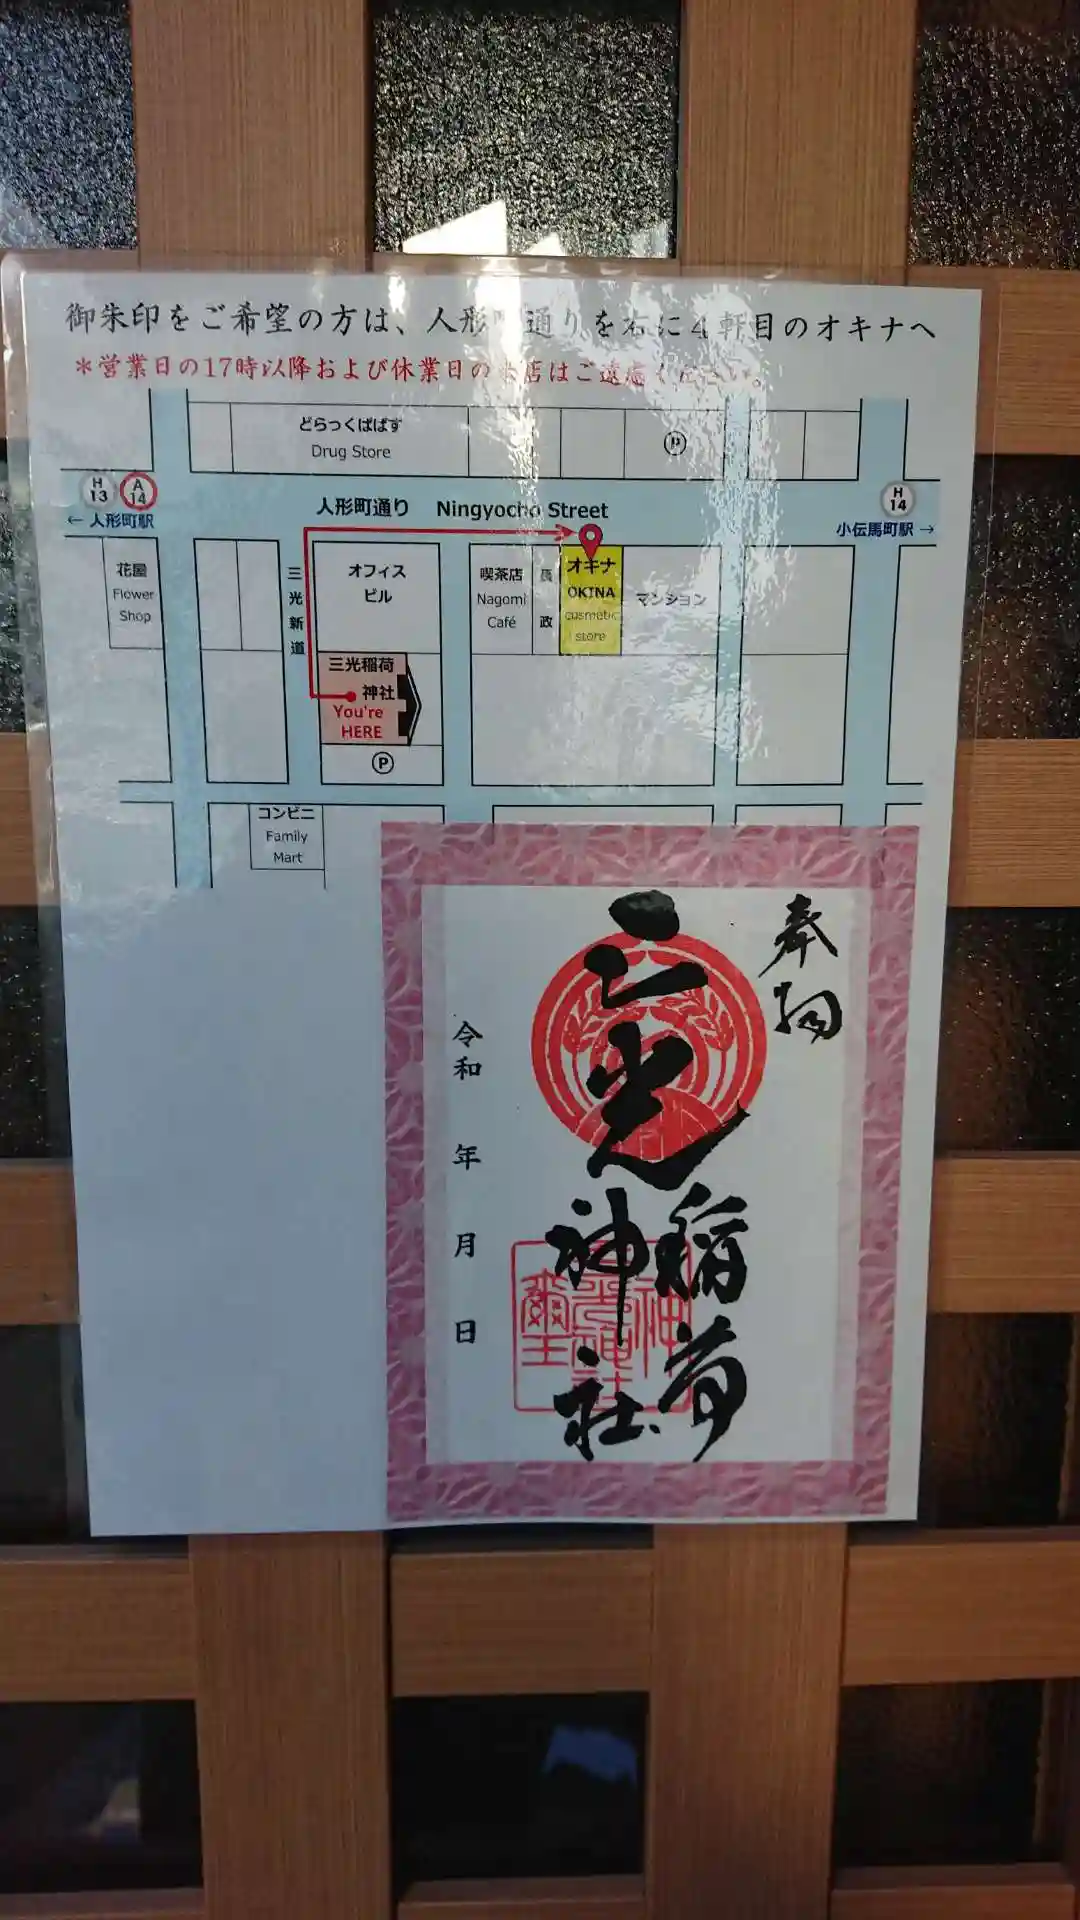 御朱印をご希望の方は、人形町通りを右に4軒目のオキナへ
＊営業日の17時以降および休業日の来店はご遠慮ください。
どらっくぱぱす
Drug Store
P
H
13
A
14
← 人形町駅
人形町通り Ningyocho Street
H
14
小伝馬町駅 →
花屋
Flower
Shop
三光新道
オフィス
ビル
喫茶店
Nagomi
Café
オキナ
OKINA
cosmetic
store
マンション
三光稲荷
神社
You're
HERE
P
コンビニ
Family
Mart
奉拝
三光稲荷神社
令和 年 月 日